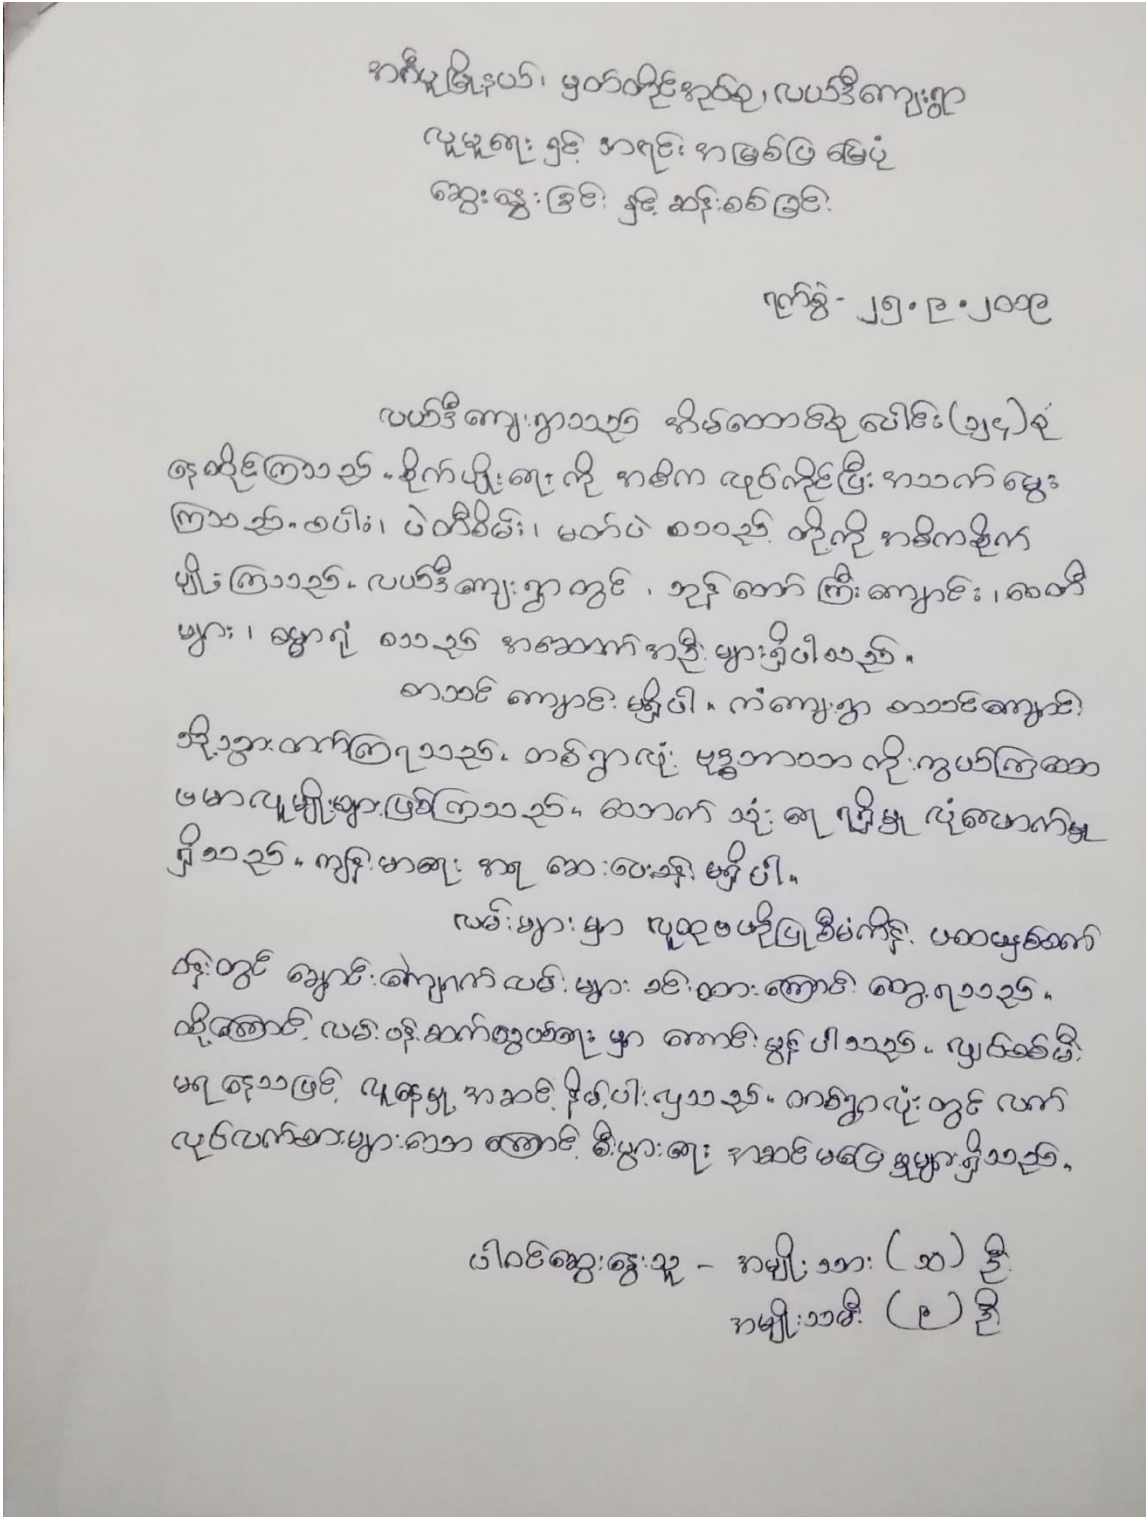 အင်္ဂပူမြို့နယ်၊ မှတ်တိုင်အုပ်စု၊ လယ်ဒီကျေးရွာ
လူမှုရေး နှင့် အရင်း အမြစ်ပြ မြေပုံ
ဆွေးနွေးခြင်း နှင့် ဆန်းစစ်ခြင်း
ရက်စွဲ - ၂၅.၉.၂၀၁၉
လယ်ဒီကျေးရွာသည် အိမ်ထောင်စုပေါင်း (၁၅၄) စု
နေထိုင်ကြသည်။ စိုက်ပျိုးရေး ကို အဓိက လုပ်ကိုင်ပြီး အသက်မွေး
ကြသည်။ စပါး၊ ပဲတီစိမ်း၊ မတ်ပဲ စသည့် တို့ကို အဓိကစိုက်
ပျိုးကြသည်။ လယ်ဒီကျေးရွာတွင် ၊ ဘုန်းတော်ကြီးကျောင်း ၊ စေတီ
များ ၊ ဓမ္မာရုံ စသည့် အဆောက်အဦးများရှိပါသည်။
စာသင်ကျောင်း မရှိပါ။ ကံကျေးရွာ စာသင်ကျောင်း
သို့သွားတက်ကြရသည်။ တစ်ရွာလုံး ဗုဒ္ဓဘာသာ ကိုးကွယ်ကြသော
ဗမာလူမျိုးများဖြစ်ကြသည်။ သောက်သုံးရေ ရရှိမှု လုံလောက်မှု
ရှိသည်။ ကျန်းမာရေး အရ ဆေးပေးခန်း မရှိပါ။
လမ်းများမှာ လူထုဗဟိုပြုစီမံကိန်း ပထမနှစ်ဆက်
တန်းတွင် ချောင်းကျောက်လမ်းများ ခင်းထားကြောင်း တွေ့ရသည်။
ထို့ကြောင့် လမ်းပန်းဆက်သွယ်ရေး မှာ ကောင်းမွန်ပါသည်။ လျှပ်စစ်မီး
မရနေသဖြင့် လူနေမှု အဆင့်နိမ့်ပါးလှသည်။ တစ်ရွာလုံးတွင် လက်
လုပ်လက်စားများသော ကြောင့် စီးပွားရေး အဆင်မပြေမှုများရှိသည်။
ပါဝင်ဆွေးနွေးသူ - အမျိုးသား (၁၀) ဦး
အမျိုးသမီး (၉) ဦး